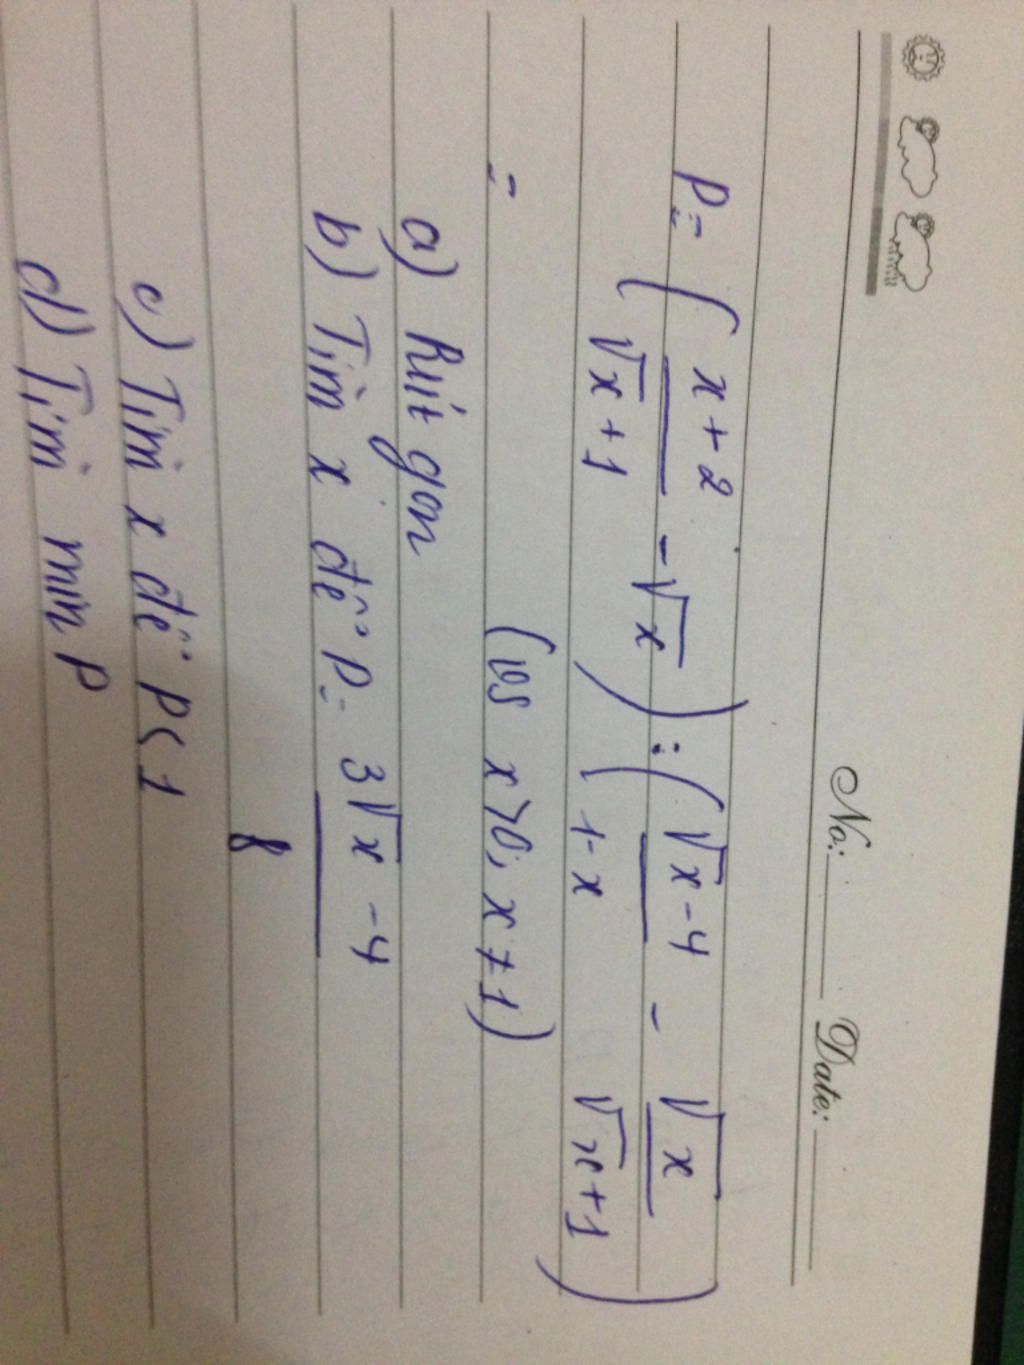 No: Date:
P = ( x+2 / √x+1 - √x ) : ( √x-4 / 1-x - √x / √x+1 )
= (vs x>0; x≠1)
a) Rút gọn
b) Tìm x để P = 3√x - 4 / 8
c) Tìm x để P<1
d) Tìm min P